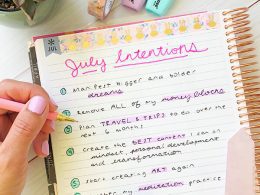 JUL
July Intentions
1 Manifest bigger and bolder
dreams
2 Remove ALL of my money blocks
3 Plan TRAVEL & TRIPS to do over the
next 6 months
4 Create the BEST content I can on
mindset, personal development
and transformation
5 Start creating ART again
my meditation practice